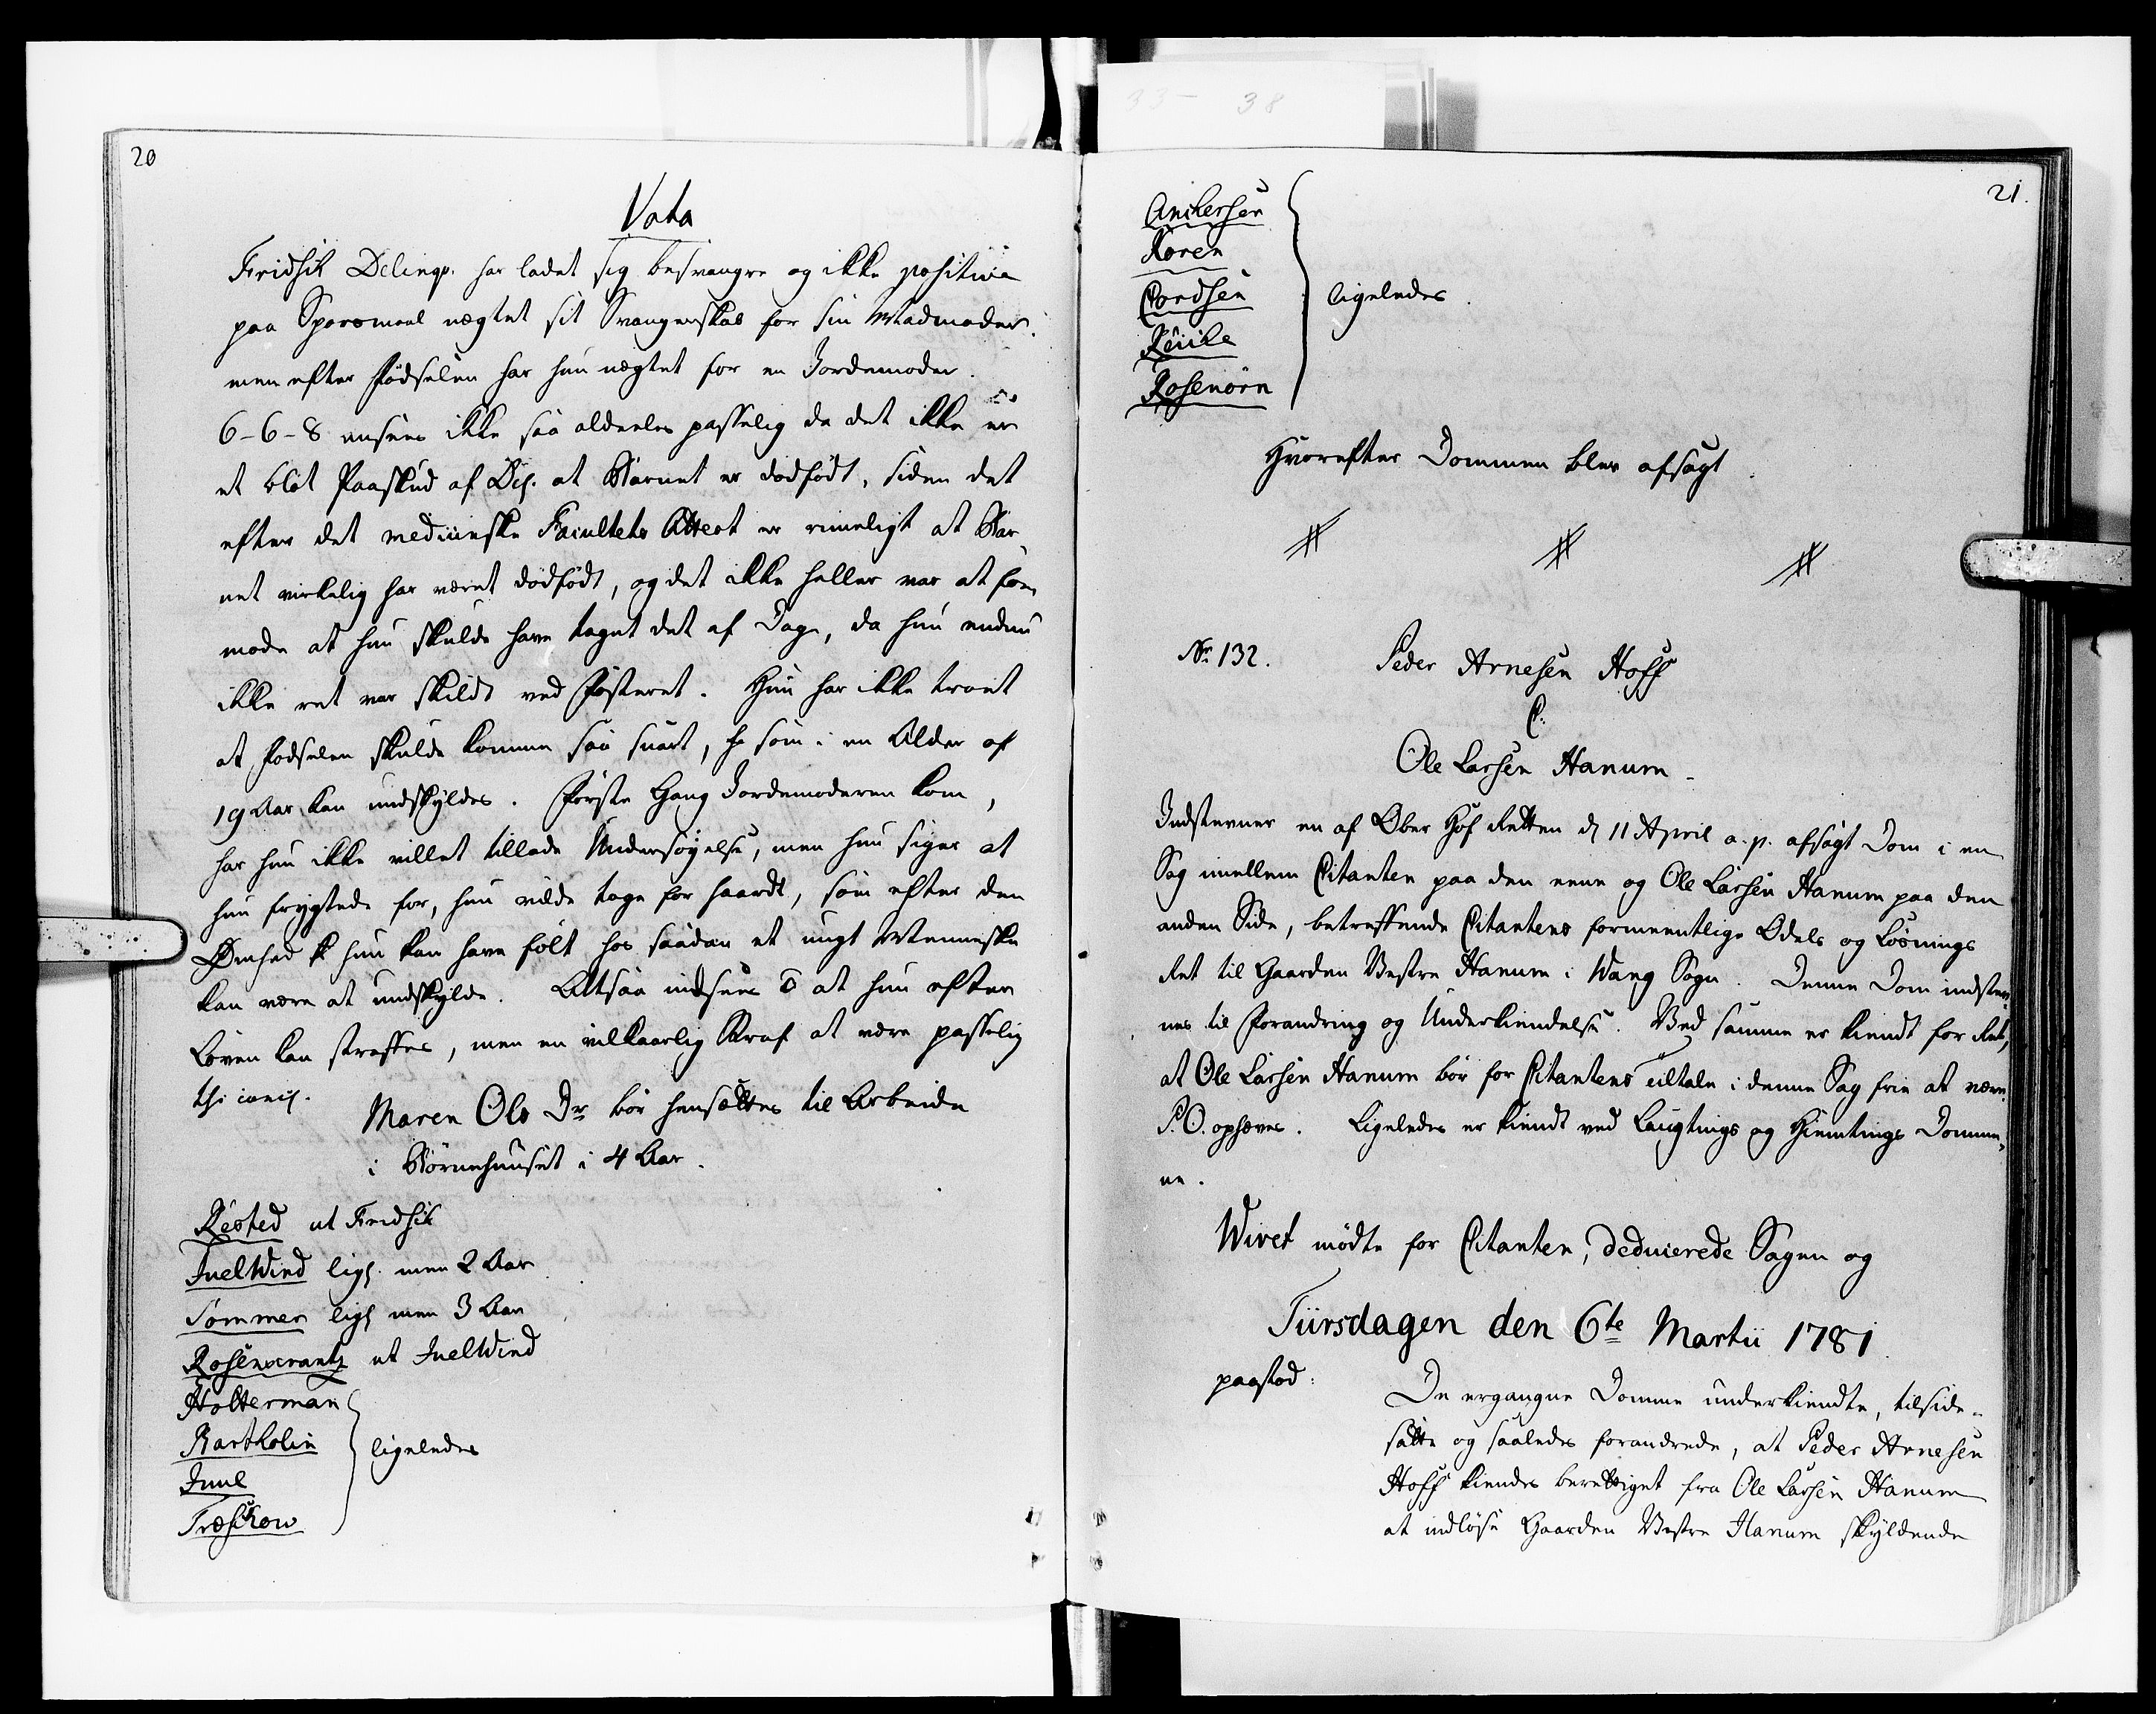 20
Vota
Fridsch Delinqv. har ladet sig besvangre og ikke positive
paa Spørsmaal nægtet sit Svangerskab for sin Madmoder.
men efter Fødselen har hun nægtet for en Jordemoder.
6-6-8 ansees ikke saa aldeeles passelig da det ikke er
et blot Paaskud af at Barnet er dødfødt, siden det
efter det medicinske Facultets Attest er rimeligt at Bar
net virkelig har været dødfødt, og det ikke heller var at for
mode at hun skulde have taget det af Dage, da hun endnu
ikke ret var skildt ved Fosteret. Hun har ikke troet
at Fødselen skulde komme saa snart, som i en Alder af
19 Aar kan undskyldes. Første Gang Jordemoderen kom,
har hun ikke villet tillade Undersøgelse, men hun siger at
hun frygtede for, hun vilde tage for haardt, som efter den
Ømhed hun kan have følt hos saadan et ungt Menneske
kan være at undskylde. Altsaa indsees at hun efter
Loven kan straffes, men en vilkaarlig Straf at være passelig
thi
Maren Ols Dr bør hensættes til Arbeide
i Børnehuuset i 4 Aar.
Rested ut Fridsch
JuelWind lig. men 2 Aar
Sommer lig men 3 Aar
Rosencrantz ut JuelWind
Holterman
Bartholin
ligeledes
Juul
Træschow
21.
Anchersen
Koren
Cordsen
ligeledes.
Reiche
Rosenørn
Hvorefter Dommen blev afsagt.
No. 132.
Peder Arnesen Hoff
C.
Ole Larsen Hanum.
Indstevner en af Ober Hof Retten d 11 April a. p. afsagt Dom i en
Sag imellem Citanten paa den eene og Ole Larsen Hanum paa den
anden Side, betreffende Citantens formeentlige Odels og Løsnings
Ret til Gaarden Vestre Hanum i Wang Sogn. Denne Dom indstev¬
nes til Forandring og Underkiendelse. Ved samme er kiendt for Ret,
at Ole Larsen Hanum bør for Citantens tiltale i denne Sag frie at være
P.O. ophæves. Ligeledes er kiendt ved Laugtings og Hiemtings Domme¬
ne.
Wivet mødte for Citanten, deducerede Sagen og
Tiirsdagen den 6te Martii 1781.
paastod:
De ergangne Domme underkiendte, tilside¬
satte og saaledes forandrede, at Peder Arnesen
Hoff kiendes berettiget fra Ole Larsen Hanum
at indløse Gaarden Vestre Hanum skyldende